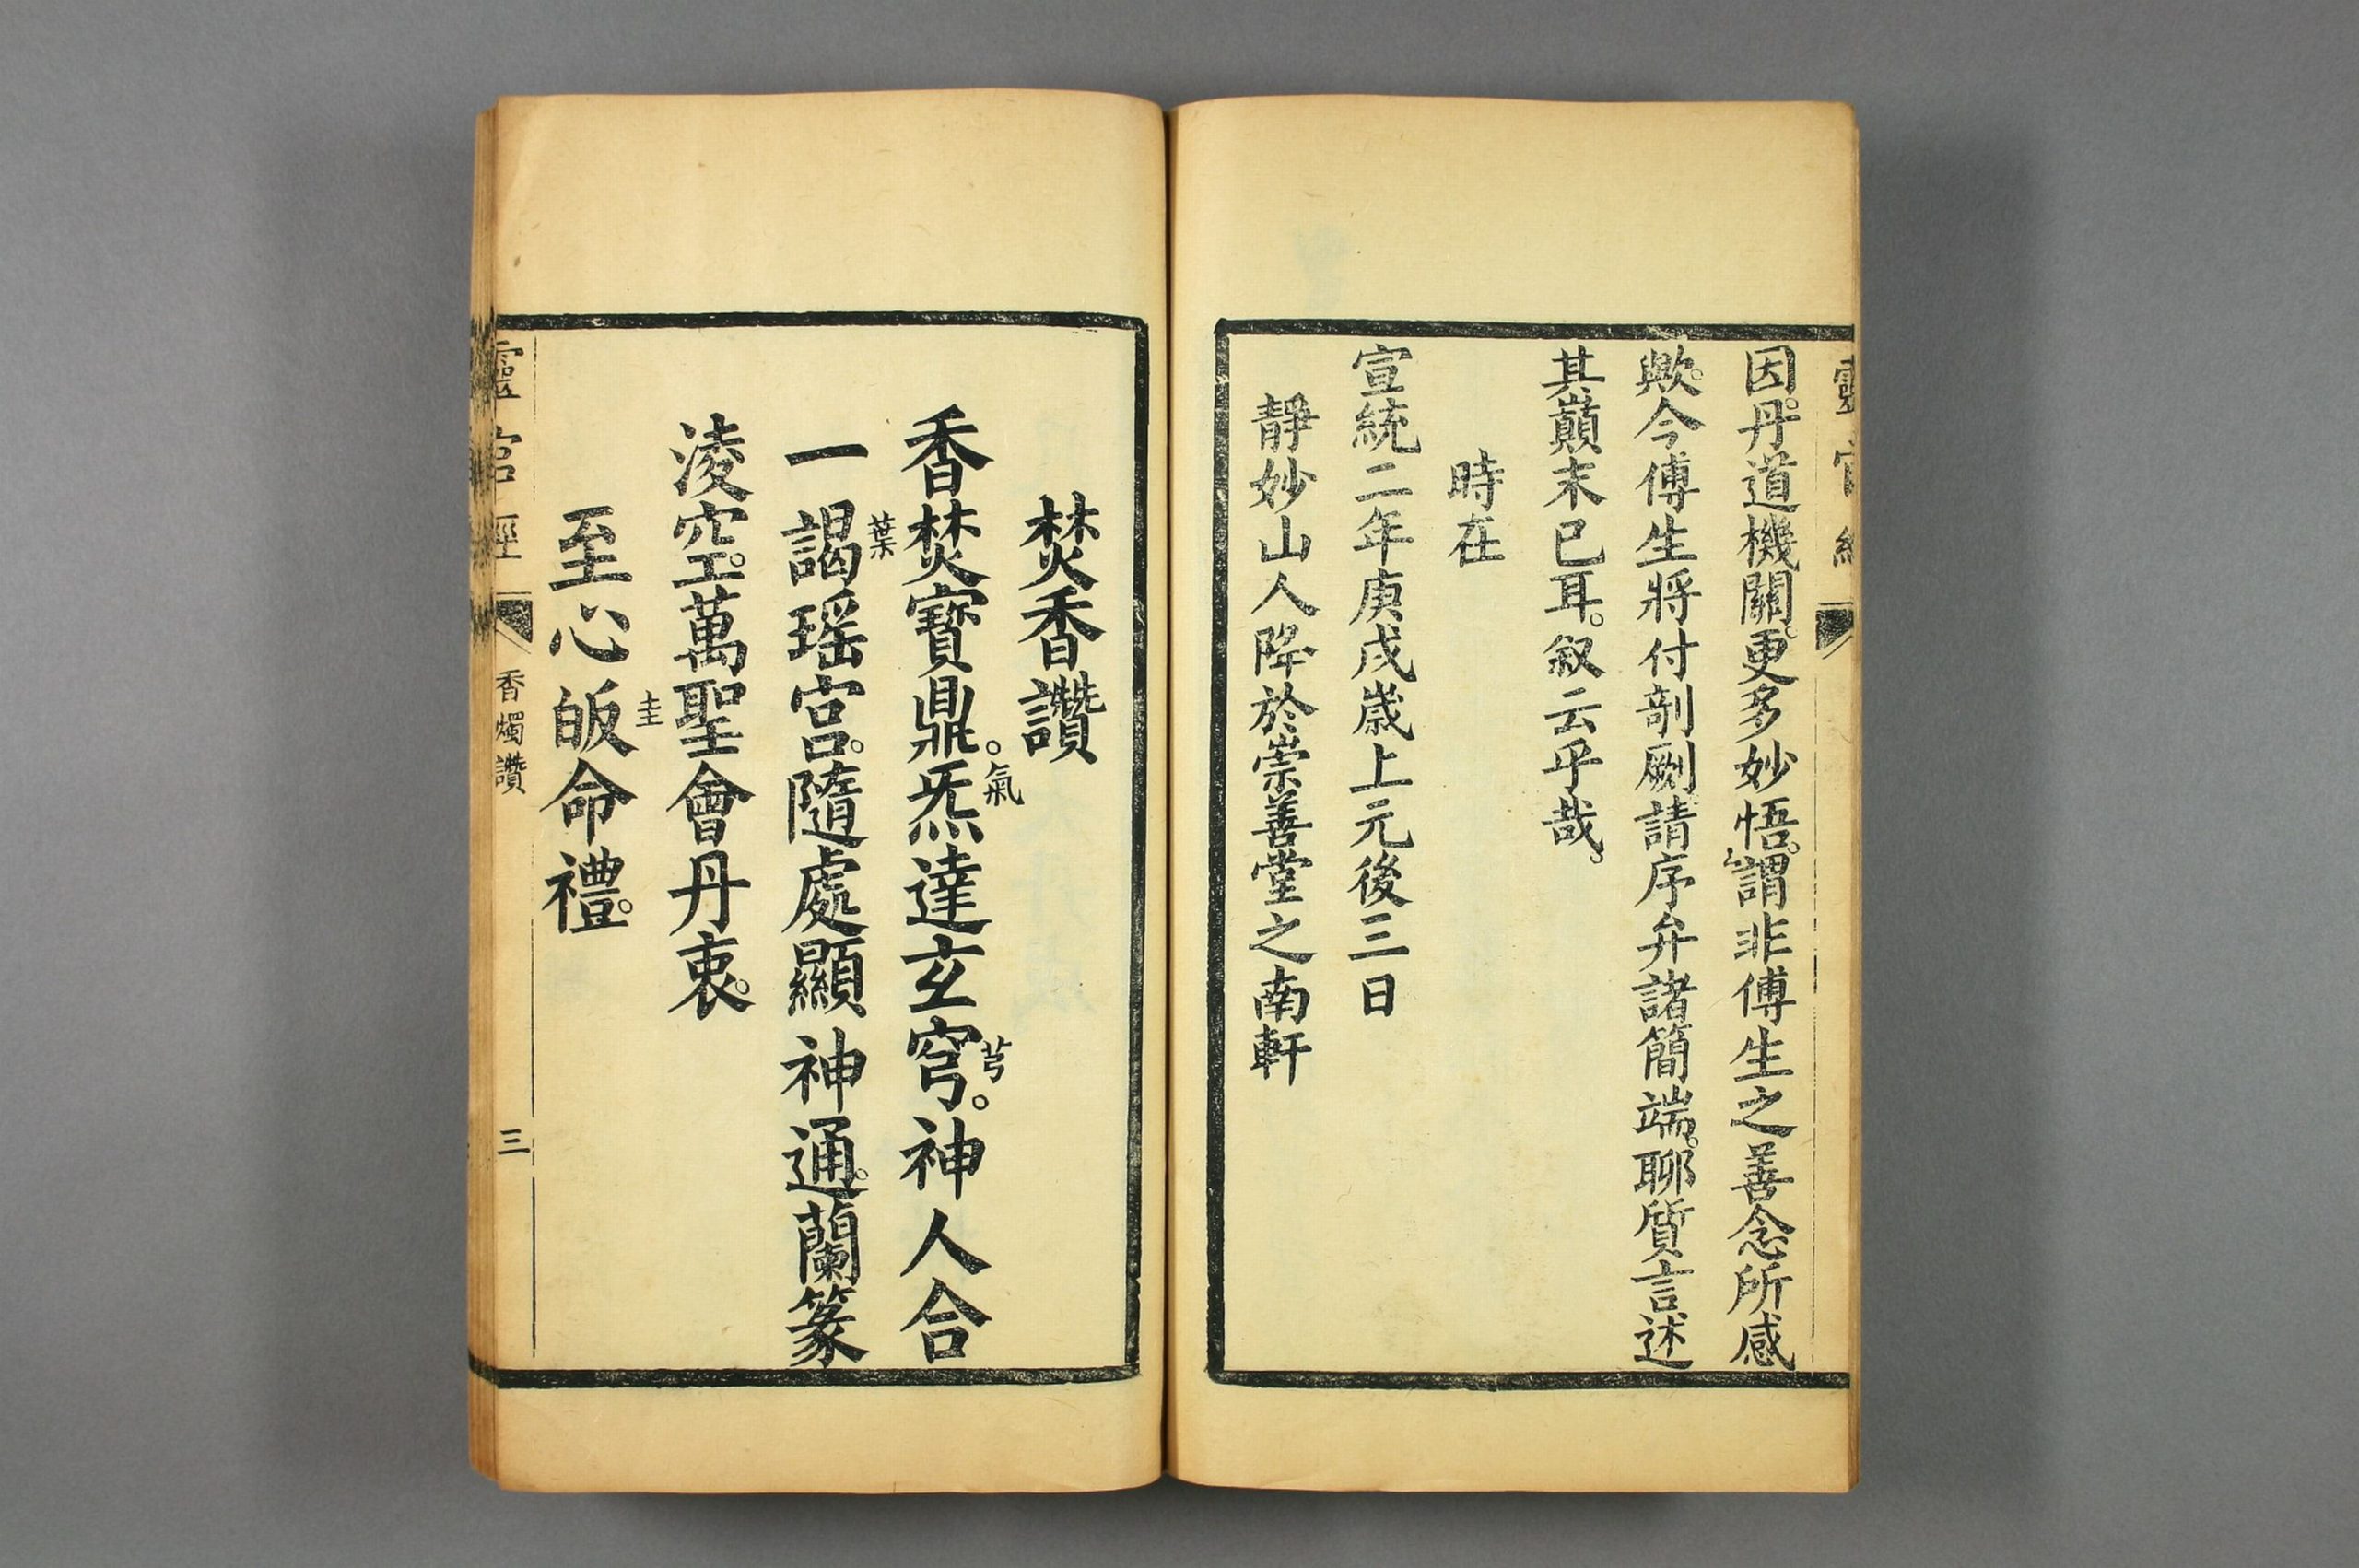 因。丹道機關。更多妙悟。謂非傅生之善念所感
歟。今傅生將付剞劂請序弁諸簡端。聊質言述
其巔末已耳。叙云乎哉。
時在
宣統二年庚戌歲上元後三日
靜妙山人降於崇善堂之南軒
焚香讚
香焚寶鼎。炁達玄穹。神人合
氣
芎
一謁瑤宮。隨處顯神通。蘭篆
葉
淩空。萬聖會丹衷。
圭
至心皈命禮。
靈官經
香燭讚
三